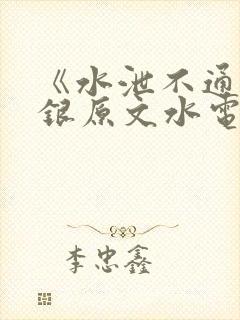 《水泄不通
银原文水電
李忠鑫